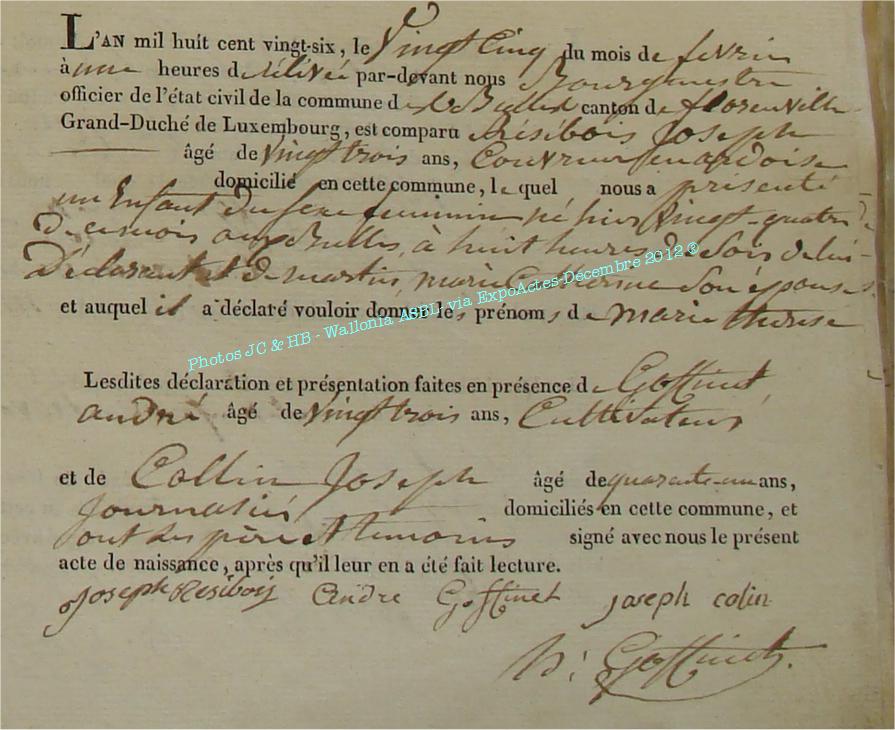 L'AN mil huit cent vingt-six, le Vingt Cinq du mois de fevrier
à une heures de rélévée par-devant nous Bourgmestre
officier de l'état civil de la commune des Bulles canton de florenville
Grand-Duché de Luxembourg, est comparu Résibois Joseph
âgé de vingt trois ans, Couvreur en ardoise
domicilié en cette commune, le quel nous a présenté
un Enfant du sexe feminin né hier vingt-quatre de
ce mois aux Bulles, à huit heures de soir de lui
Déclarant et de martin, marie Catherine son épouse
et auquel il a déclaré vouloir donner les prénoms de marie therese
Photos JC & HB - Wallonia ASBL via ExpoActes Décembre 2012 ®
Lesdites déclaration et présentation faites en présence de Goffinet
andré âgé de vingt trois ans, Cultivateur
et de Collin Joseph âgé de quarante-un ans,
Journalié domiciliés en cette commune, et
ont les père et temoins signé avec nous le présent
acte de naissance, après qu'il leur en a été fait lecture.
Joseph Résibois andre Goffinet joseph colin
Goffinet.